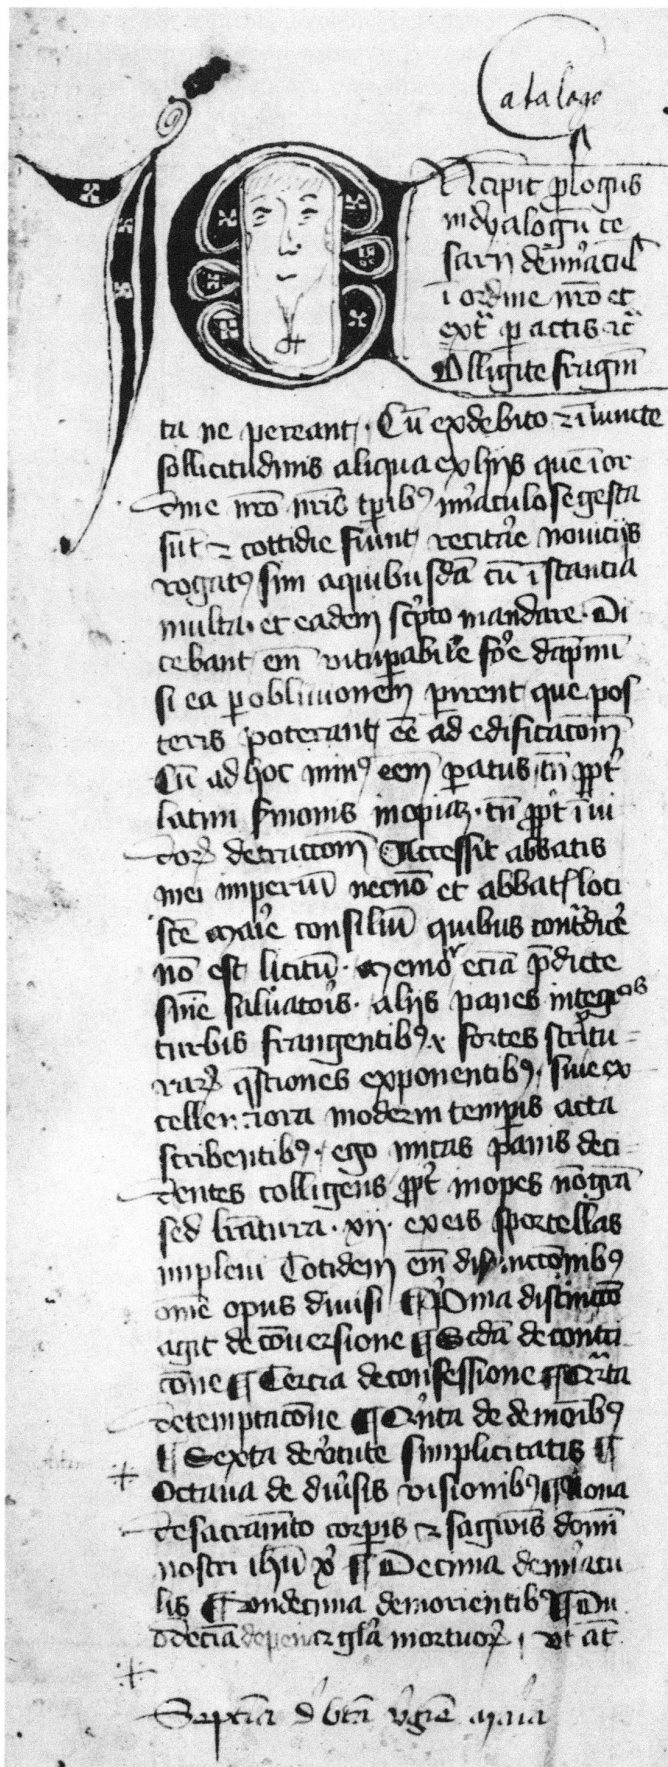 Catalogo
Incipit plogus
in dyalogū ce
sarij de miraculis
ī ordine nr̄o et
ext͛ pactis ⁊c̄
Olligite fragm̄
ta ne pereant. Cū ex debito ⁊ īiuncte
sollicitudinis aliqua ex hijs que ī or
dine nr̄o nr̄is tp̄ibꝰ miraculose gesta
sūt ⁊ cottidie fiunt recitare nouicijs
rogatꝰ sum a quibusdā cū īstantia
multa. et eadem scͥpto mandare. Di
cebant em̄ vitupabiłe foͬe dāpnū
si ea p obliuionem pirent que pos
teris poterant eē ad edificacōem
Cū ad hoc minꝰ eēm paratus. tū ꝓpt͛
latini s̄monis inopiā. tū ꝓpt͛ īui
doꝝ detractōem Accessit abbatis
mei imperiū necnō et abbatꝭ loci
sc̄e Marie consiliū quibus cont͛dice͛
nō est licitū. Memor eciā p̄dicte
sn̄ie saluatoris. alijs panes integros
turbis frangentibꝰ. fortes scͥptu=
raꝝ q̄stiones exponentibꝰ. siue ex
cellenciora moderni tempis acta
scribentibꝰ. ego micas panis deci=
dentes colligens ꝓpt͛ inopes nō gr̄a
sed lr̄atura. xij. ex eis sportellas
impleui Totidem em̄ distinccōnibꝰ
ōne opus diuisi ¶ Pͥma distinccō
agit de cōuersione ¶ Scd̄a de contri
cōne ¶ Tercia de confessione ¶ Qͣrta
de temptacōne ¶ Qͥnta de demōibꝰ
¶ Sexta de vͥtute simplicitatis ¶
Octaua de diuͥsis visionibꝰ ¶ Nona
de sacramēto corpis ⁊ sāgwis domī
nostri ihū xp̄i ¶ Decima de mͥracu
lis ¶ Vndecima de morientibꝰ ¶ Du
odeciā de pena ⁊ glͥa mortuoꝝ . vt at̄
Septiā de btā vͥgīe maria